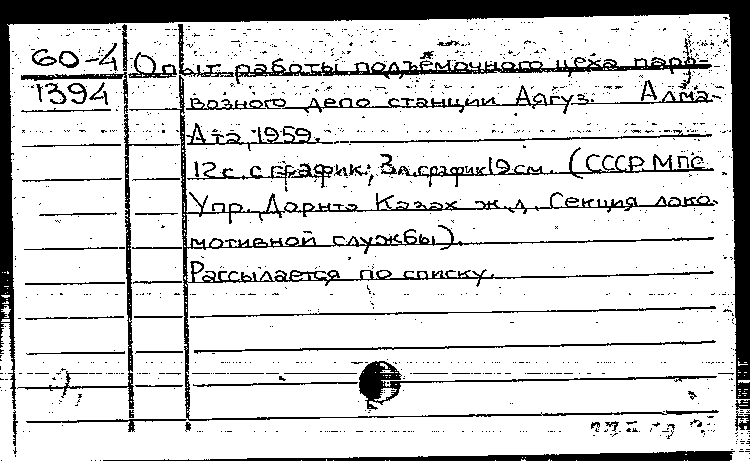 60-4 Опыт работы подъёмочного цеха паро-
1394 возного депо станции Аягуз. Алма-
Ата, 1959.
12 с. с график.; 3 л. график 19 см. (СССР МПС
Упр. Дорнто Казах ж.д. Секция локо-
мотивной службы).
Рассылается по списку.